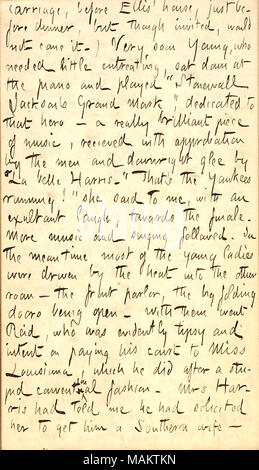 carriage, before Ellis' house, just be-
fore dinner, but though invited, would
not come it.) Very soon Young, who
needed little entreating, sat down at
the piano and played "Stonewall
Jackson's Grand March," dedicated to
that hero — a really brilliant piece
of music, recieved with approbation
by the men and downright glee by
"La belle Harris." "That's the Yankees
running!" she said to me, with an
exultant laugh, towards the finale.
More music and singing followed. In
the meantime most of the young ladies
were driven by the heat into the other
room — the front parlor, the big folding
doors being open — with them went
Reid, who was evidently tipsy and
intent on paying his court to Miss
Louisiana, which he did after a stu-
pid conventional fashion. Mrs Har-
ris had told me he had solicited
her to get him a Southern wife —
alamy
www.alamy.com
MAKTKN